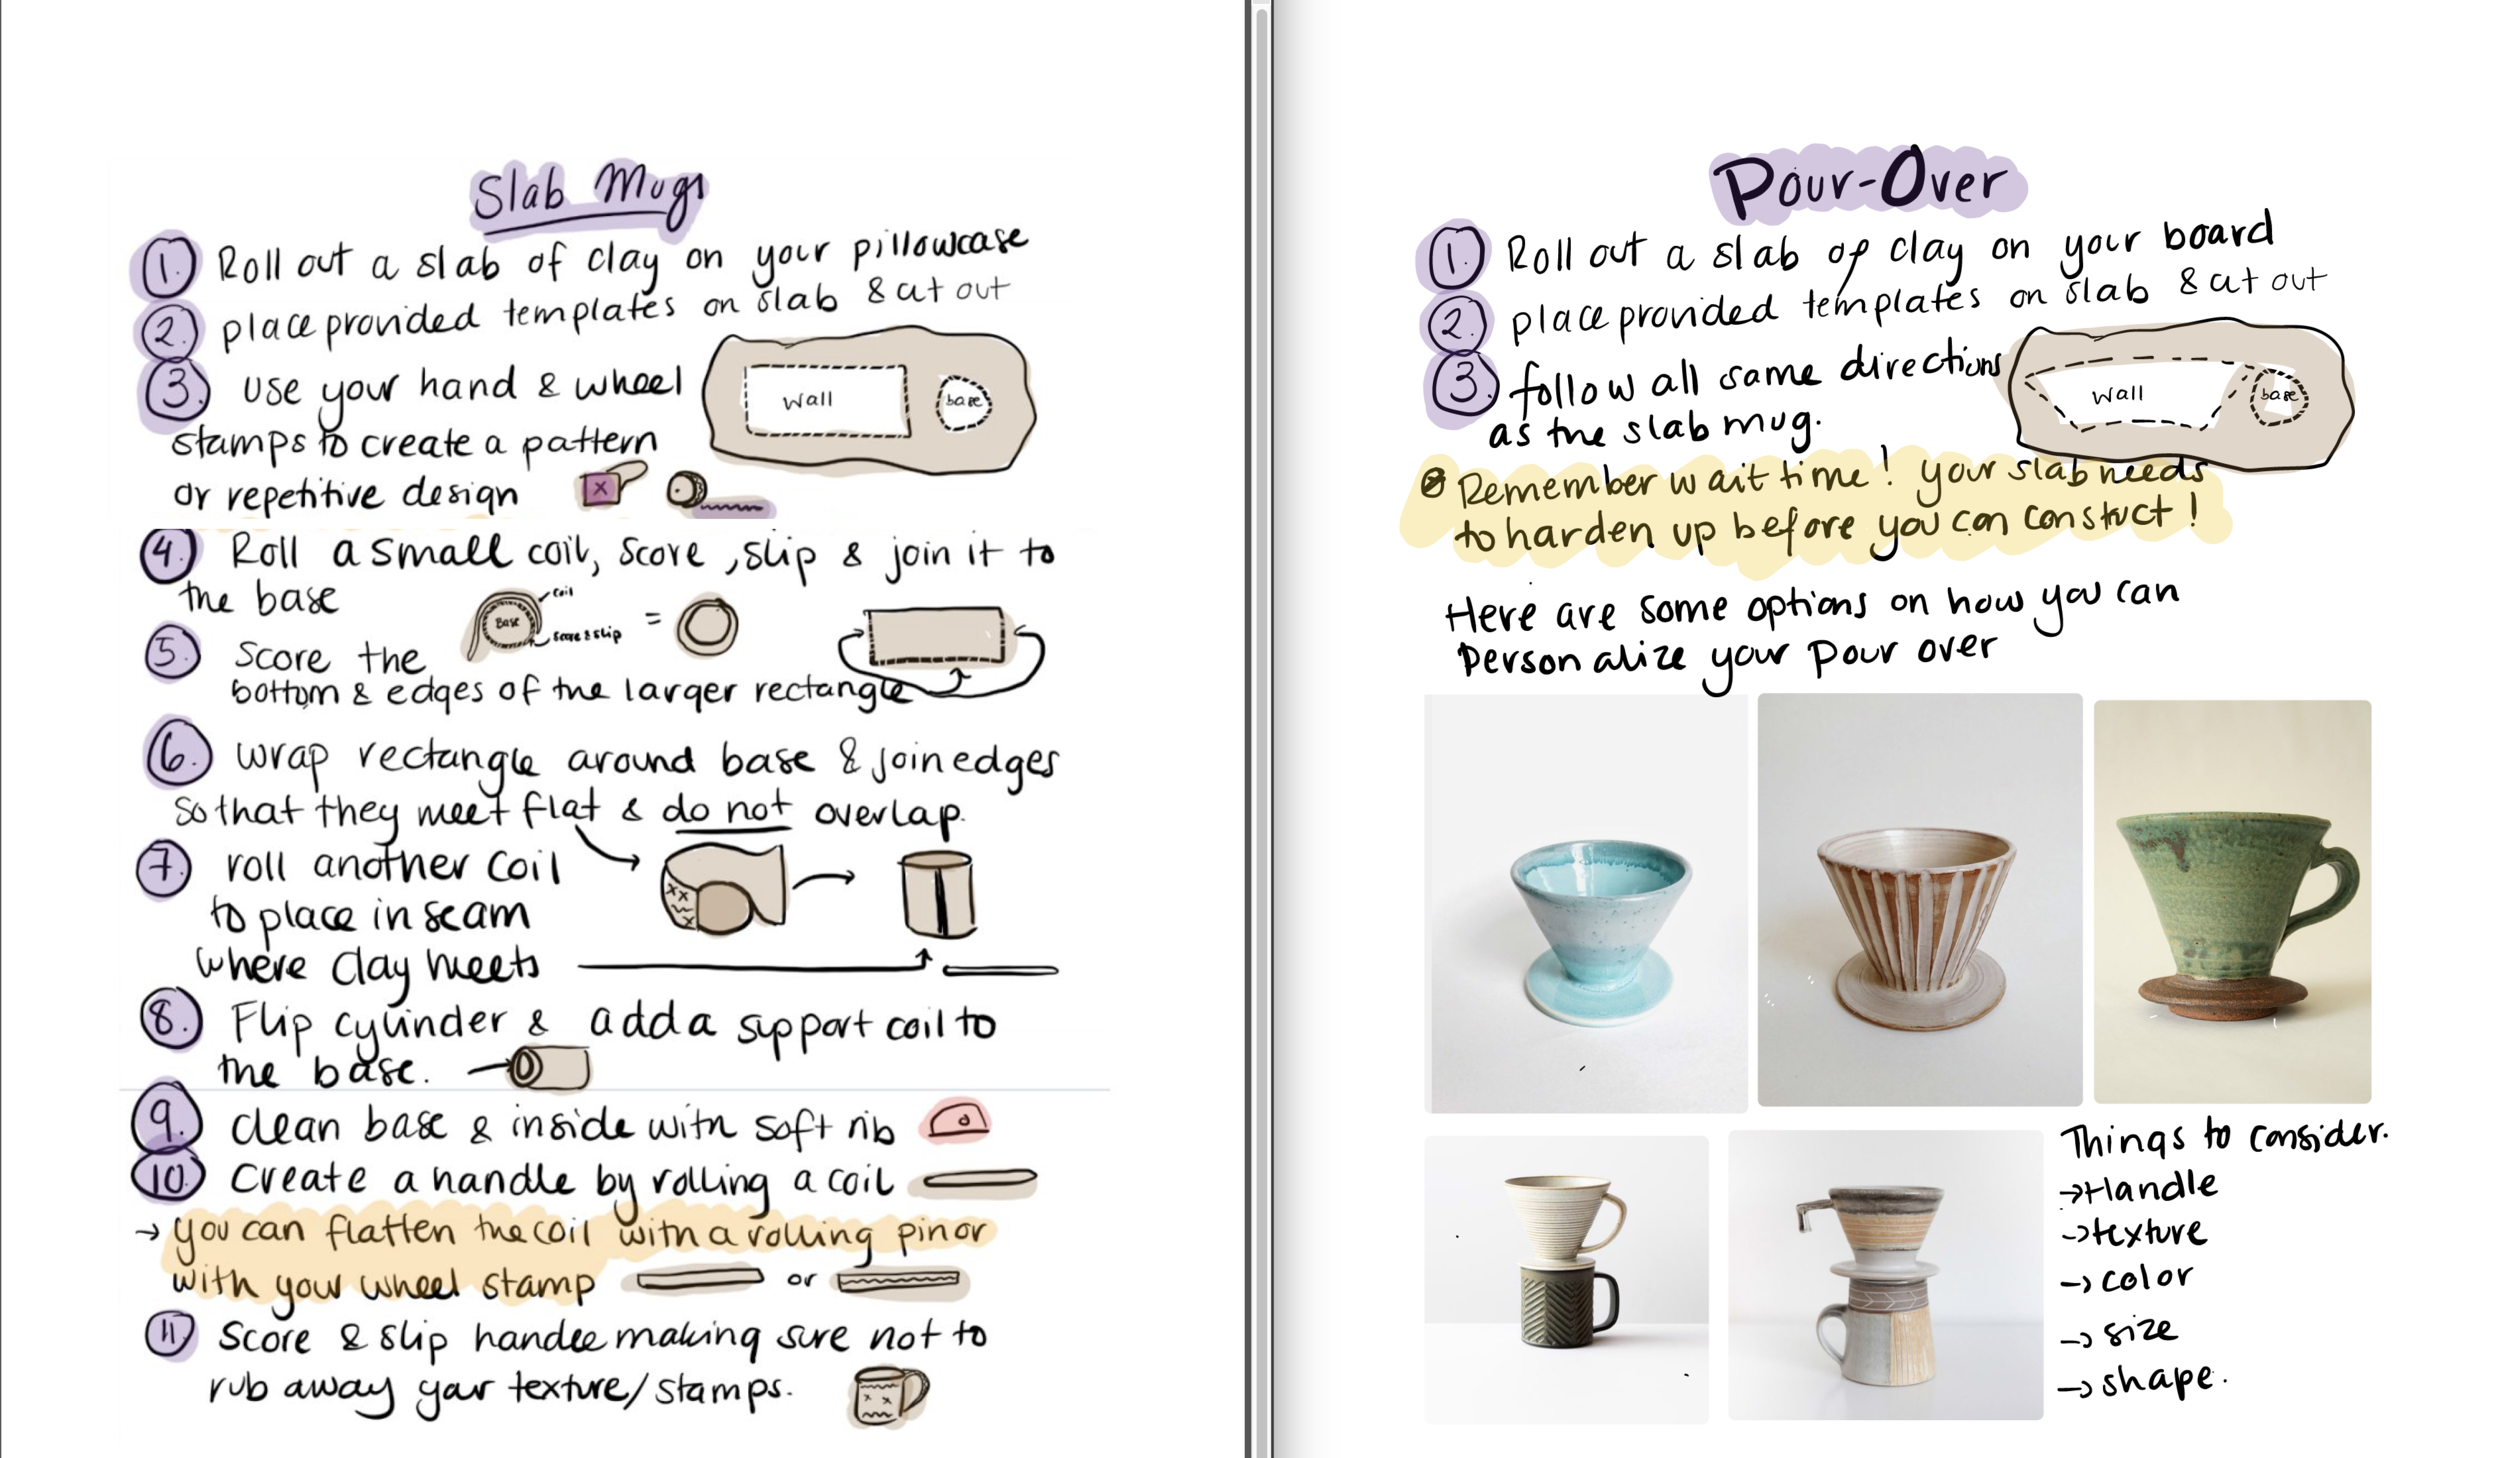 Slab Mugs
1. Roll out a slab of clay on your pillowcase
2. place provided templates on slab & cut out
3. use your hand & wheel
stamps to create a pattern
or repetitive design
wall
base
x
4. Roll a small coil, score, slip & join it to
the base
coil
Base
score & slip
=
5. Score the
bottom & edges of the larger rectangle
6. wrap rectangle around base & join edges
so that they meet flat & do not overlap.
7. roll another coil
to place in seam
where clay meets
8. Flip cylinder & add a support coil to
the base.
9. clean base & inside with soft rib
10. Create a handle by rolling a coil
→ you can flatten the coil with a rolling pin or
with your wheel stamp
or
11. Score & slip handle making sure not to
rub away your texture/stamps.
Pour-Over
1. Roll out a slab of clay on your board
2. place provided templates on slab & cut out
3. follow all same directions
as the slab mug.
wall
base
Remember wait time! your slab needs
to harden up before you can constuct!
Here are some options on how you can
Personalize your pour over
Things to consider.
→ Handle
→ texture
→ color
→ size
→ shape.